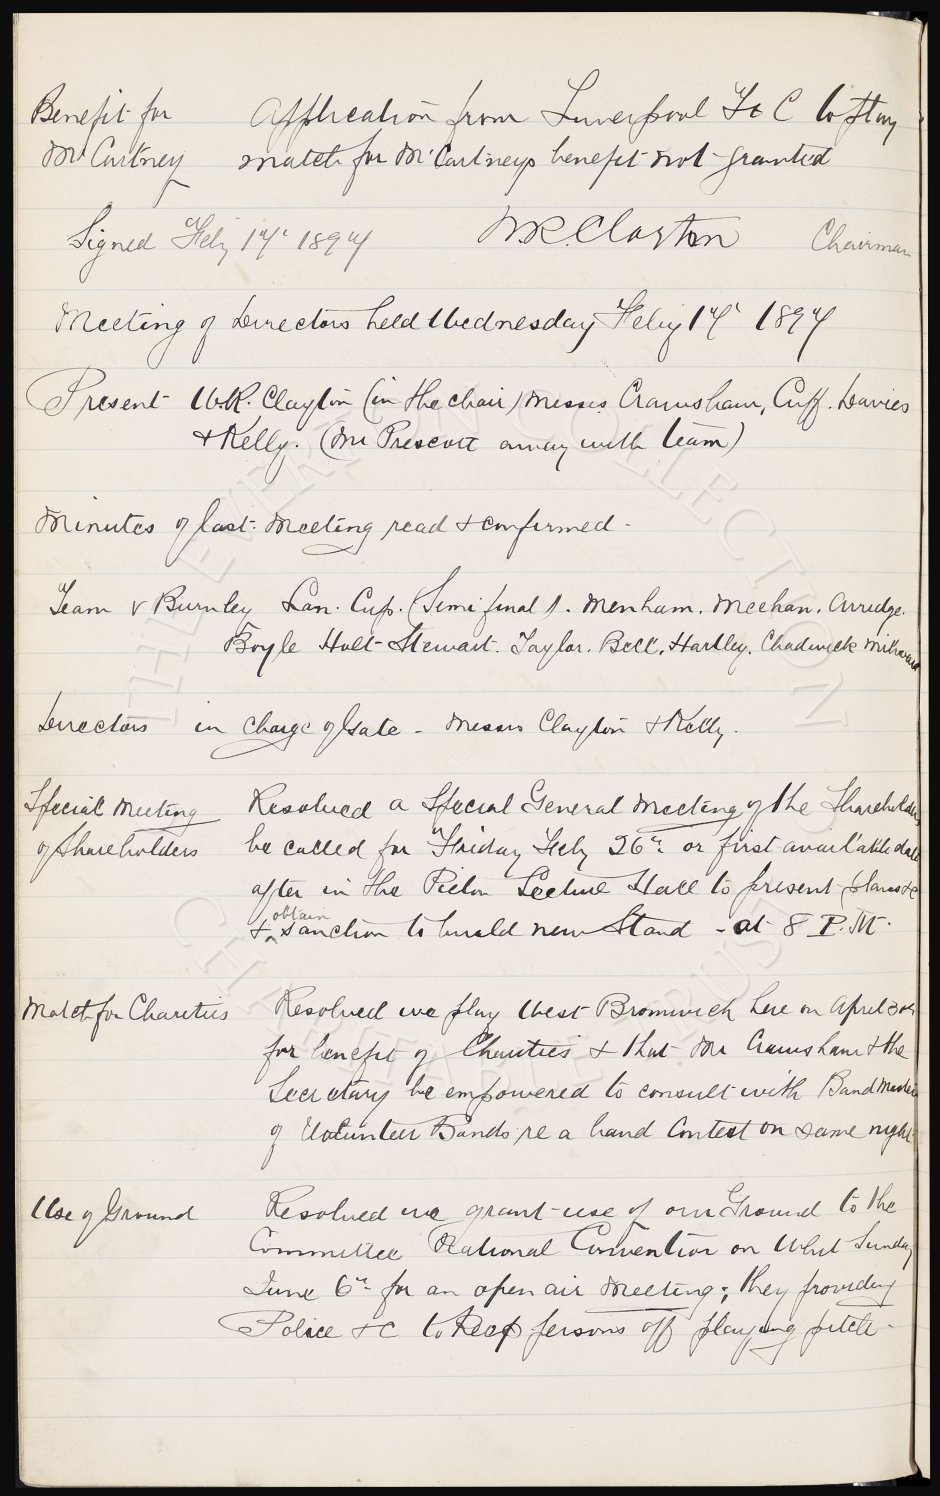 Benefit for Application from Liverpool F & C to play
McCartney match for McCartneys benefit not granted
Signed Feby 17" 1897 W.R. Clayton Chairman
Meeting of Directors held Wednesday Feby 17" 1897
Present W.R. Clayton (in the chair) Messrs Cramshaw, Cuff. Davies
& Kelly. (Mr Prescott away with team)
Minutes of last Meeting read & confirmed -
Team v Burnley Lan. Cup. (Semi final). Menham. Meehan. Arridge.
Boyle Holt Stewart. Taylor. Bell. Hartley. Chadwick Milward
Directors in charge of Gate - Messrs Clayton & Kelly.
Special Meeting Resolved a Special General Meeting of the Shareholders
of Shareholders be called for Friday Feby 26th or first available date
after in the Picton Lecture Hall to present plans &c
& obtain sanction to build new Stand - at 8 P.M.
Match for Charities Resolved we play West Bromwich here on April 30th
for benefit of Charities & that Mr Cramshaw & the
Secretary be empowered to consult with Band Masters
of Volunteer Bands re a band Contest on same night
Use of Ground Resolved we grant use of our Ground to the
Committee National Convention on Whit Sunday
June 6th for an open air Meeting; they providing
Police &c to keep persons off playing pitch -
THE EVERTON COLLECTION
CHARITABLE TRUST